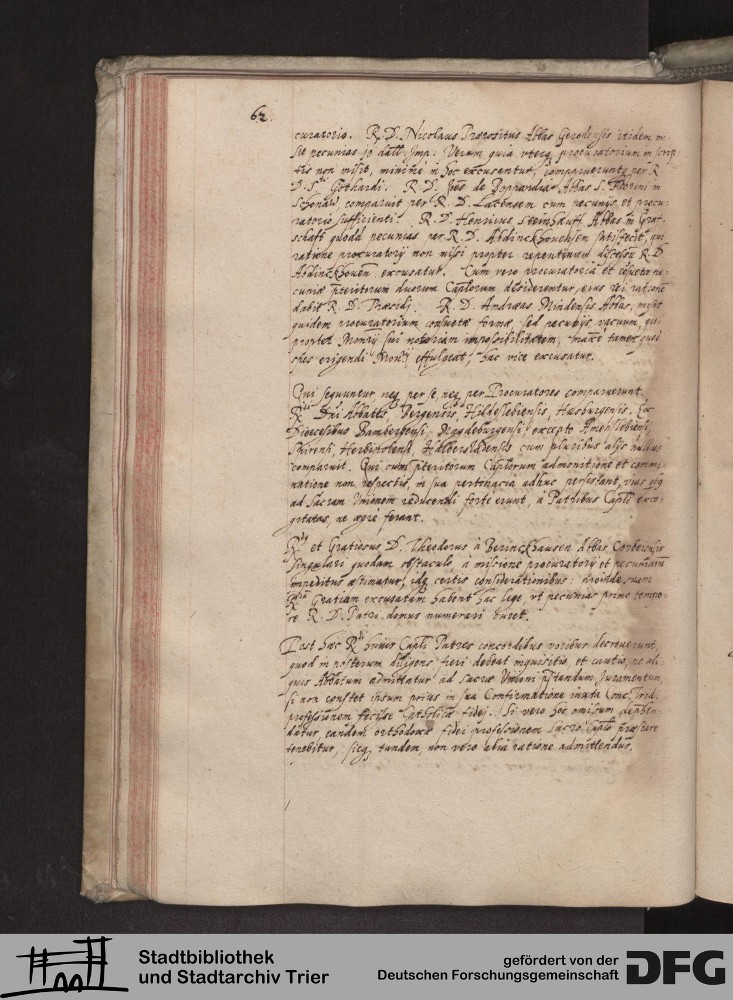 62.
curatorio. R. D. Nicolaus Præpositus Abbas itidem mi-
sit pecunias 10 dall. Imp. Verum quia procuratorium in scrip-
tis non misit, minime in hoc excusantur, comparuerunt per R.
D. S. Gothardi. R. D. Joēs de Boppardia Abbas S. Florini in
Schonaw, comparuit per R. D. Lacensem cum pecunijs et procu-
ratorio sufficienti. R. D. Henricus Abbas in Graf-
schafft quoad pecunias per R. D. satisfecit, qui
ratione procuratorij non missi propter repentinum discessum R. D.
excusatur. Cum vero procuratoria et consueta pe-
cunia præteritorum duorum Capitlorum desiderentur, eius rei rationem
dabit R. D. Præsidi. R. D. Andreas Mindensis Abbas, misit
quidem procuratorium consuetæ formæ, sed pecunijs vacuum, qui
propter Monrij sui notoriam impossibilitatem, maxe tamen quod
spes erigendi Monrij effulgeat, hac vice excusatur.
Qui sequuntur neq per se, neq per Procuratores comparuerunt.
Rdi Dni Abbates Bergensis, Hildeslebiensis, Husburgensis. Ex
Diœcesibus Bambergensi, Magdeburgensi, excepto
Spirensi, Herbipolensi, Halberstadensis cum pluribus alijs nullus
comparuit. Qui cum præteritorum Capitlorum admonitione et commi-
natione non respectis, in sua pertinacia adhuc persistant, vijs
ad Sacram Unionem reducendi forte erunt, à Patribus Capitli exco-
gitatis, ne ægre ferant.
Rdus et Gratiosus D. Theodorus à Berinckhausen Abbas Corbeiensis
singulari quodam obstaculo, à missione procuratorij et pecuniarum
impeditus æstimatur, idq certis considerationibus: proinde suam
Gratiam excusatam habent hac lege, vt pecunias primo tempo-
re R. D. Patri domus numerari curet.
Post hæc Rdi huius Capitli Patres concordibus vocibus decreuerunt,
quod in posterum diligens fieri debeat inquisitio, et cautio, ne ali-
quis Abbatum admittatur ad Sacræ Unioni præstandum Juramentum,
si non constet ipsum prius in sua Confirmatione iuxta Conc. Trid.
professionem fecisse Catholicæ fidej. Si vero hoc omissum deprehen-
datur, eandem orthodoxæ fidei professionem Sacro Capitlo præstare
tenebitur, sicq tandem, non vero alia ratione admittendus.
Stadtbibliothek
und Stadtarchiv Trier
gefördert von der
Deutschen Forschungsgemeinschaft
DFG